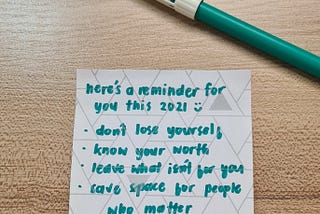 here's a reminder for
you this 2021 ☺
- don't lose yourself
- know your worth
- leave what isn't for you
- save space for people
who matter